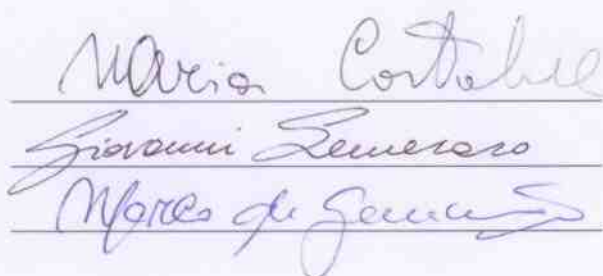 Maria Costabile
Giovanni Semeraro
Marco de Gemmis